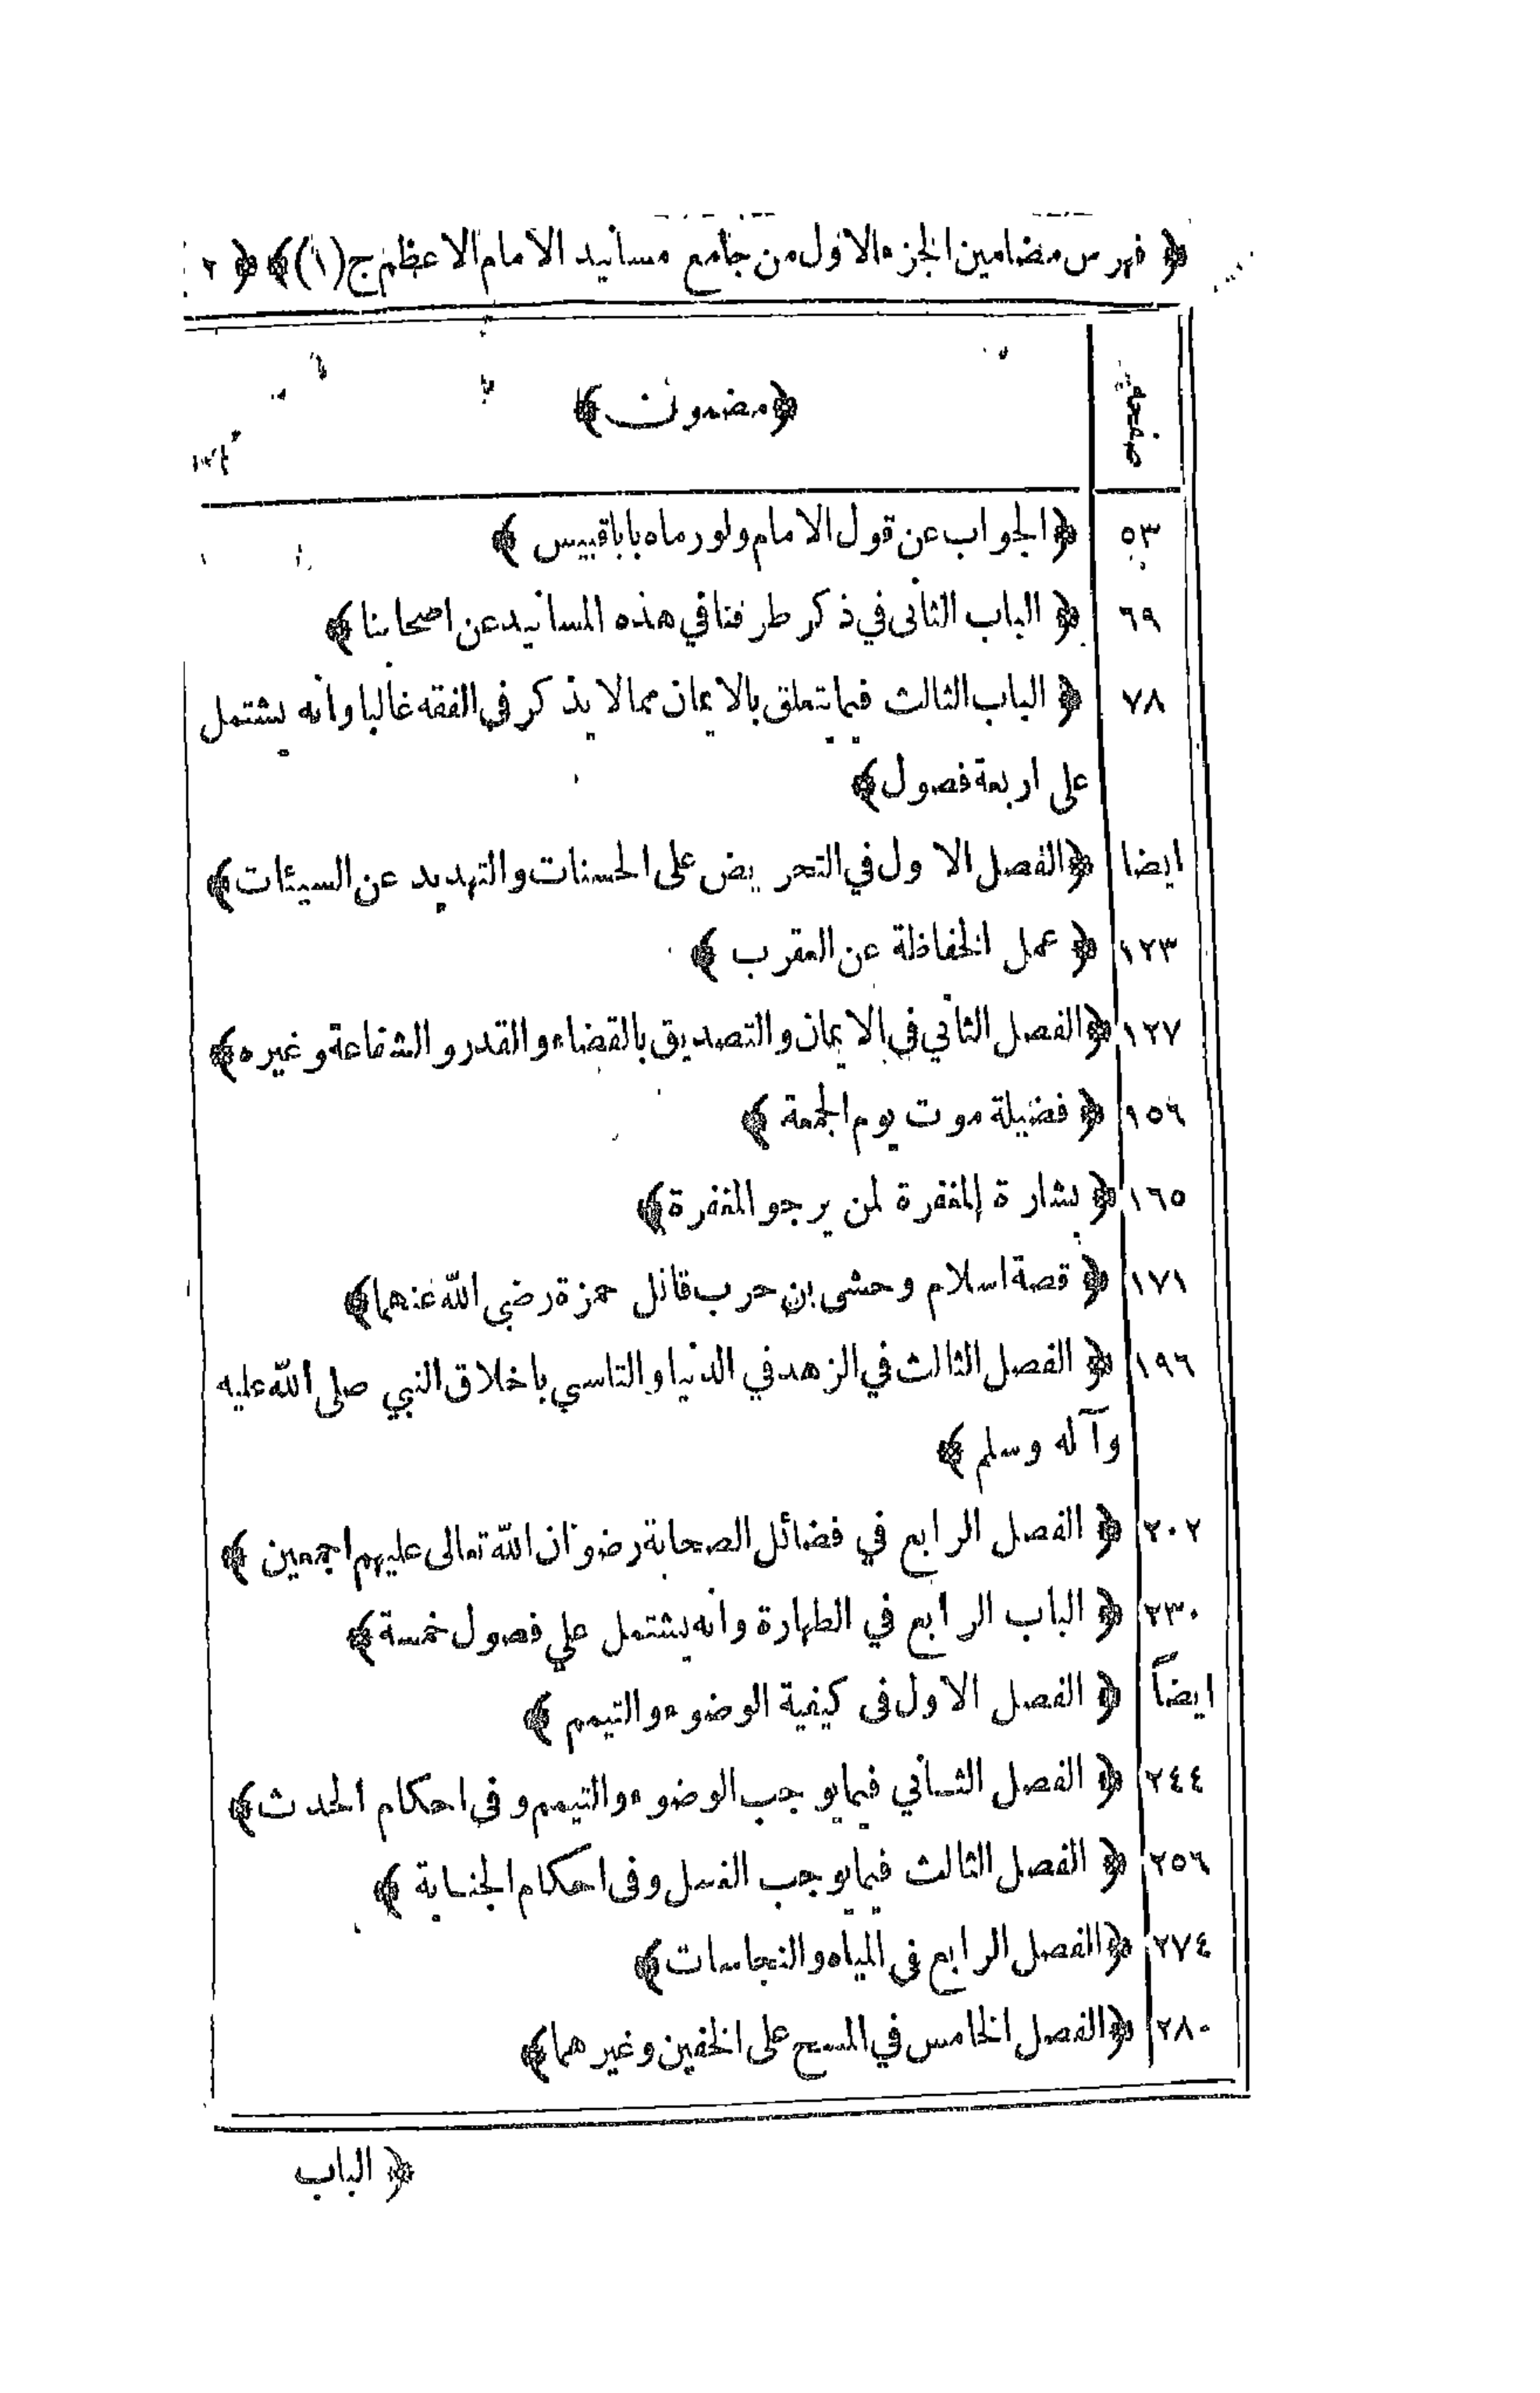 ﴿ فهرس مضامين الجزء الاول من جامع مسانيد الامام الاعظم ج (١) ﴾ ﴿ ٢
صفحه ﴿ مضمون ﴾
٥٣ ﴿ الجواب عن قول الامام ولو رماه بابا قبيس ﴾
٦٩ ﴿ الباب الثانى في ذكر طرقنا في هذه المسانيد عن اصحابنا ﴾
٧٨ ﴿ الباب الثالث فيما يتعلق بالايمان مما لا يذكر في الفقه غالبا وانه يشتمل
على اربعة فصول ﴾
ايضا ﴿ الفصل الاول في التحريض على الحسنات والتهديد عن السيئات ﴾
١٢٣ ﴿ عمل الحفاظة عن العقرب ﴾
١٢٧ ﴿ الفصل الثاني في الايمان والتصديق بالقضاء والقدر والشفاعة وغيره ﴾
١٥٦ ﴿ فضيلة موت يوم الجمعة ﴾
١٦٥ ﴿ بشارة المغفرة لمن يرجو المغفرة ﴾
١٧١ ﴿ قصة اسلام وحشى بن حرب قاتل حمزة رضي الله عنهما ﴾
١٩٦ ﴿ الفصل الثالث في الزهد في الدنيا والتاسي باخلاق النبي صلى الله عليه
وآله وسلم ﴾
٢٠٢ ﴿ الفصل الرابع في فضائل الصحابة رضوان الله تعالى عليهم اجمعين ﴾
٢٣٠ ﴿ الباب الرابع في الطهارة وانه يشتمل علي فصول خمسة ﴾
ايضاً ﴿ الفصل الاول فى كيفية الوضوء والتيمم ﴾
٢٤٤ ﴿ الفصل الثاني فيما يوجب الوضوء والتيمم و فى احكام الحدث ﴾
٢٥٦ ﴿ الفصل الثالث فيما يوجب الغسل وفى احكام الجنابة ﴾
٢٧٤ ﴿ الفصل الرابع فى المياه والنجاسات ﴾
٢٨٠ ﴿ الفصل الخامس في المسح على الخفين وغيرهما ﴾
﴿ الباب